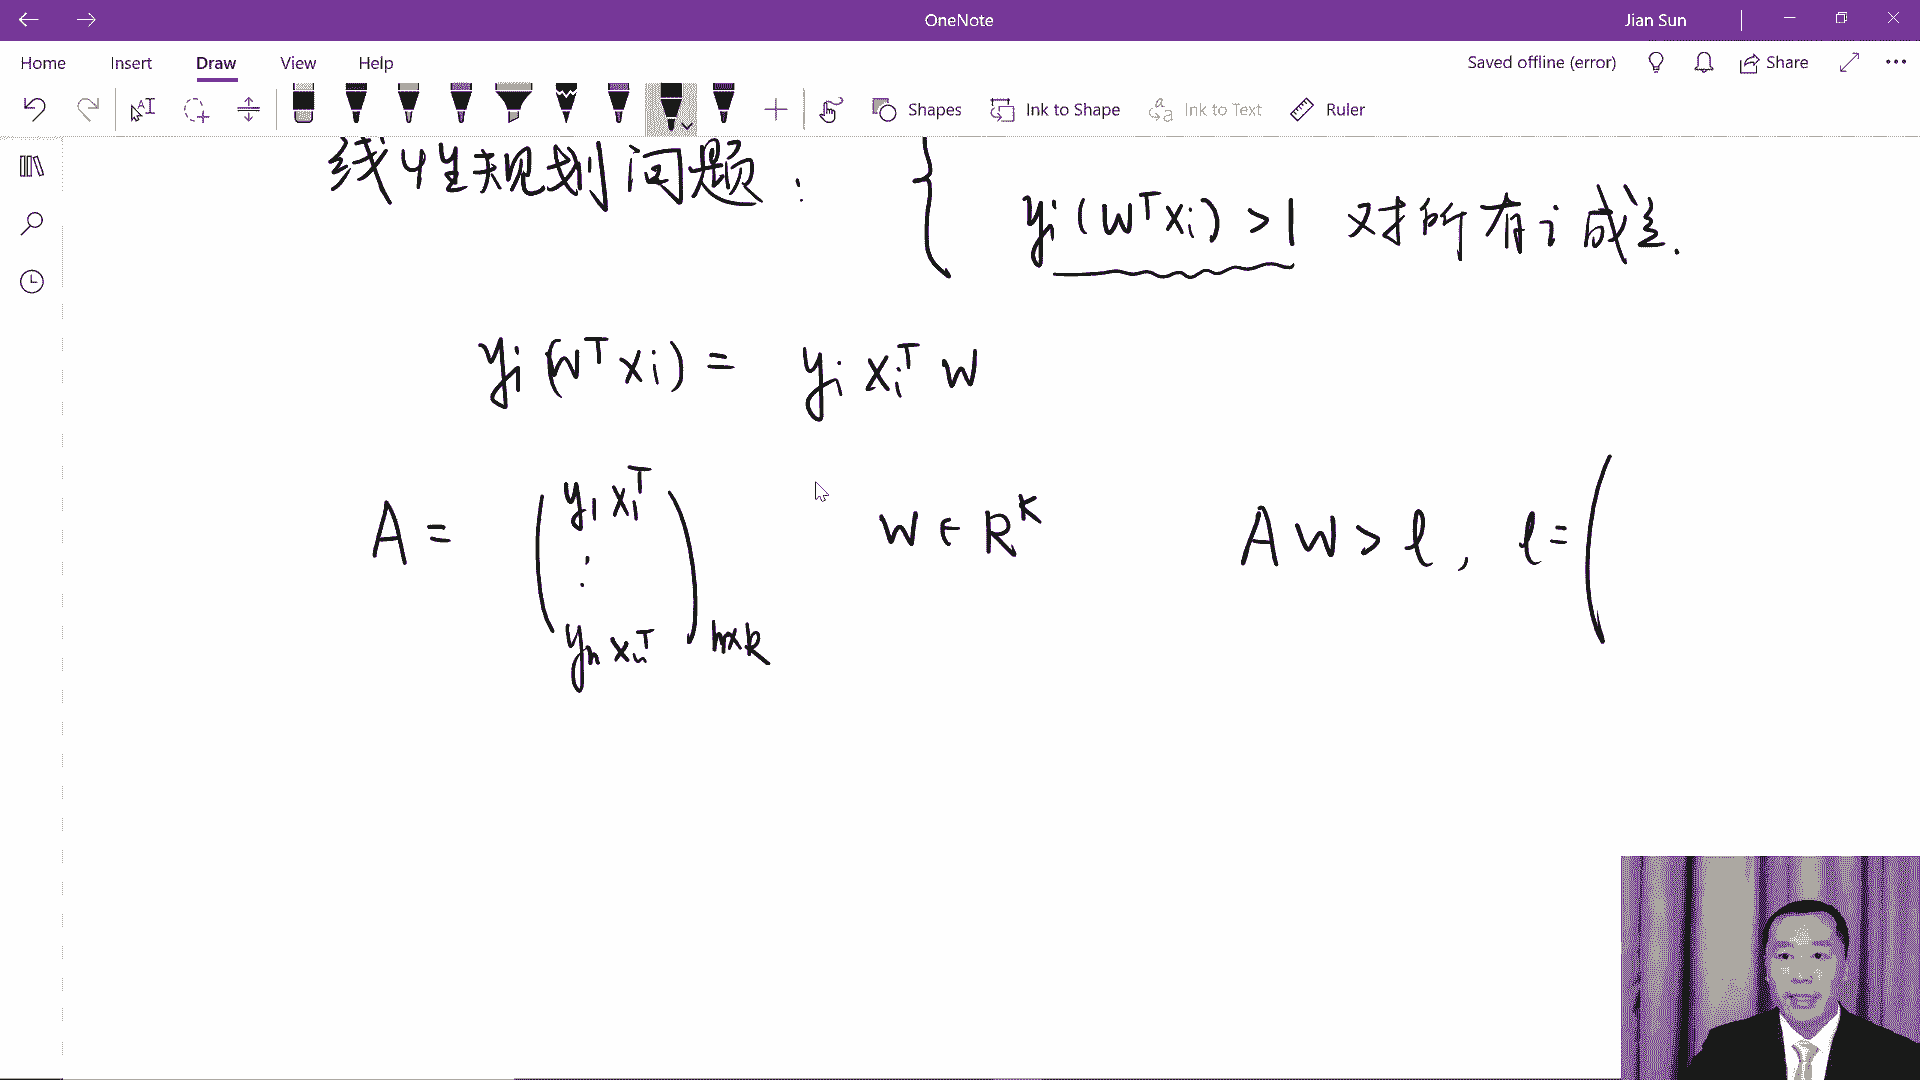 OneNote
Jian Sun
Home Insert Draw View Help
Saved offline (error) Share
Shapes Ink to Shape Ink to Text Ruler
线性规划问题:
yᵢ(WᵀXᵢ) > 1 对所有 i 成立.
yᵢ(WᵀXᵢ) = yᵢ Xᵢᵀ W
A = ( y₁ x₁ᵀ
⋮
yₙ xₙᵀ )ₙₓₖ
W ∈ Rᴷ
A W > ℓ, ℓ = (